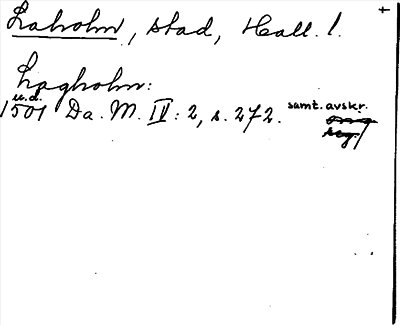 Laholm, stad, Hall. l. †
Lagholm:
u.d.
1501 Da. M. IV: 2, s. 272. samt. avskr.
reg.